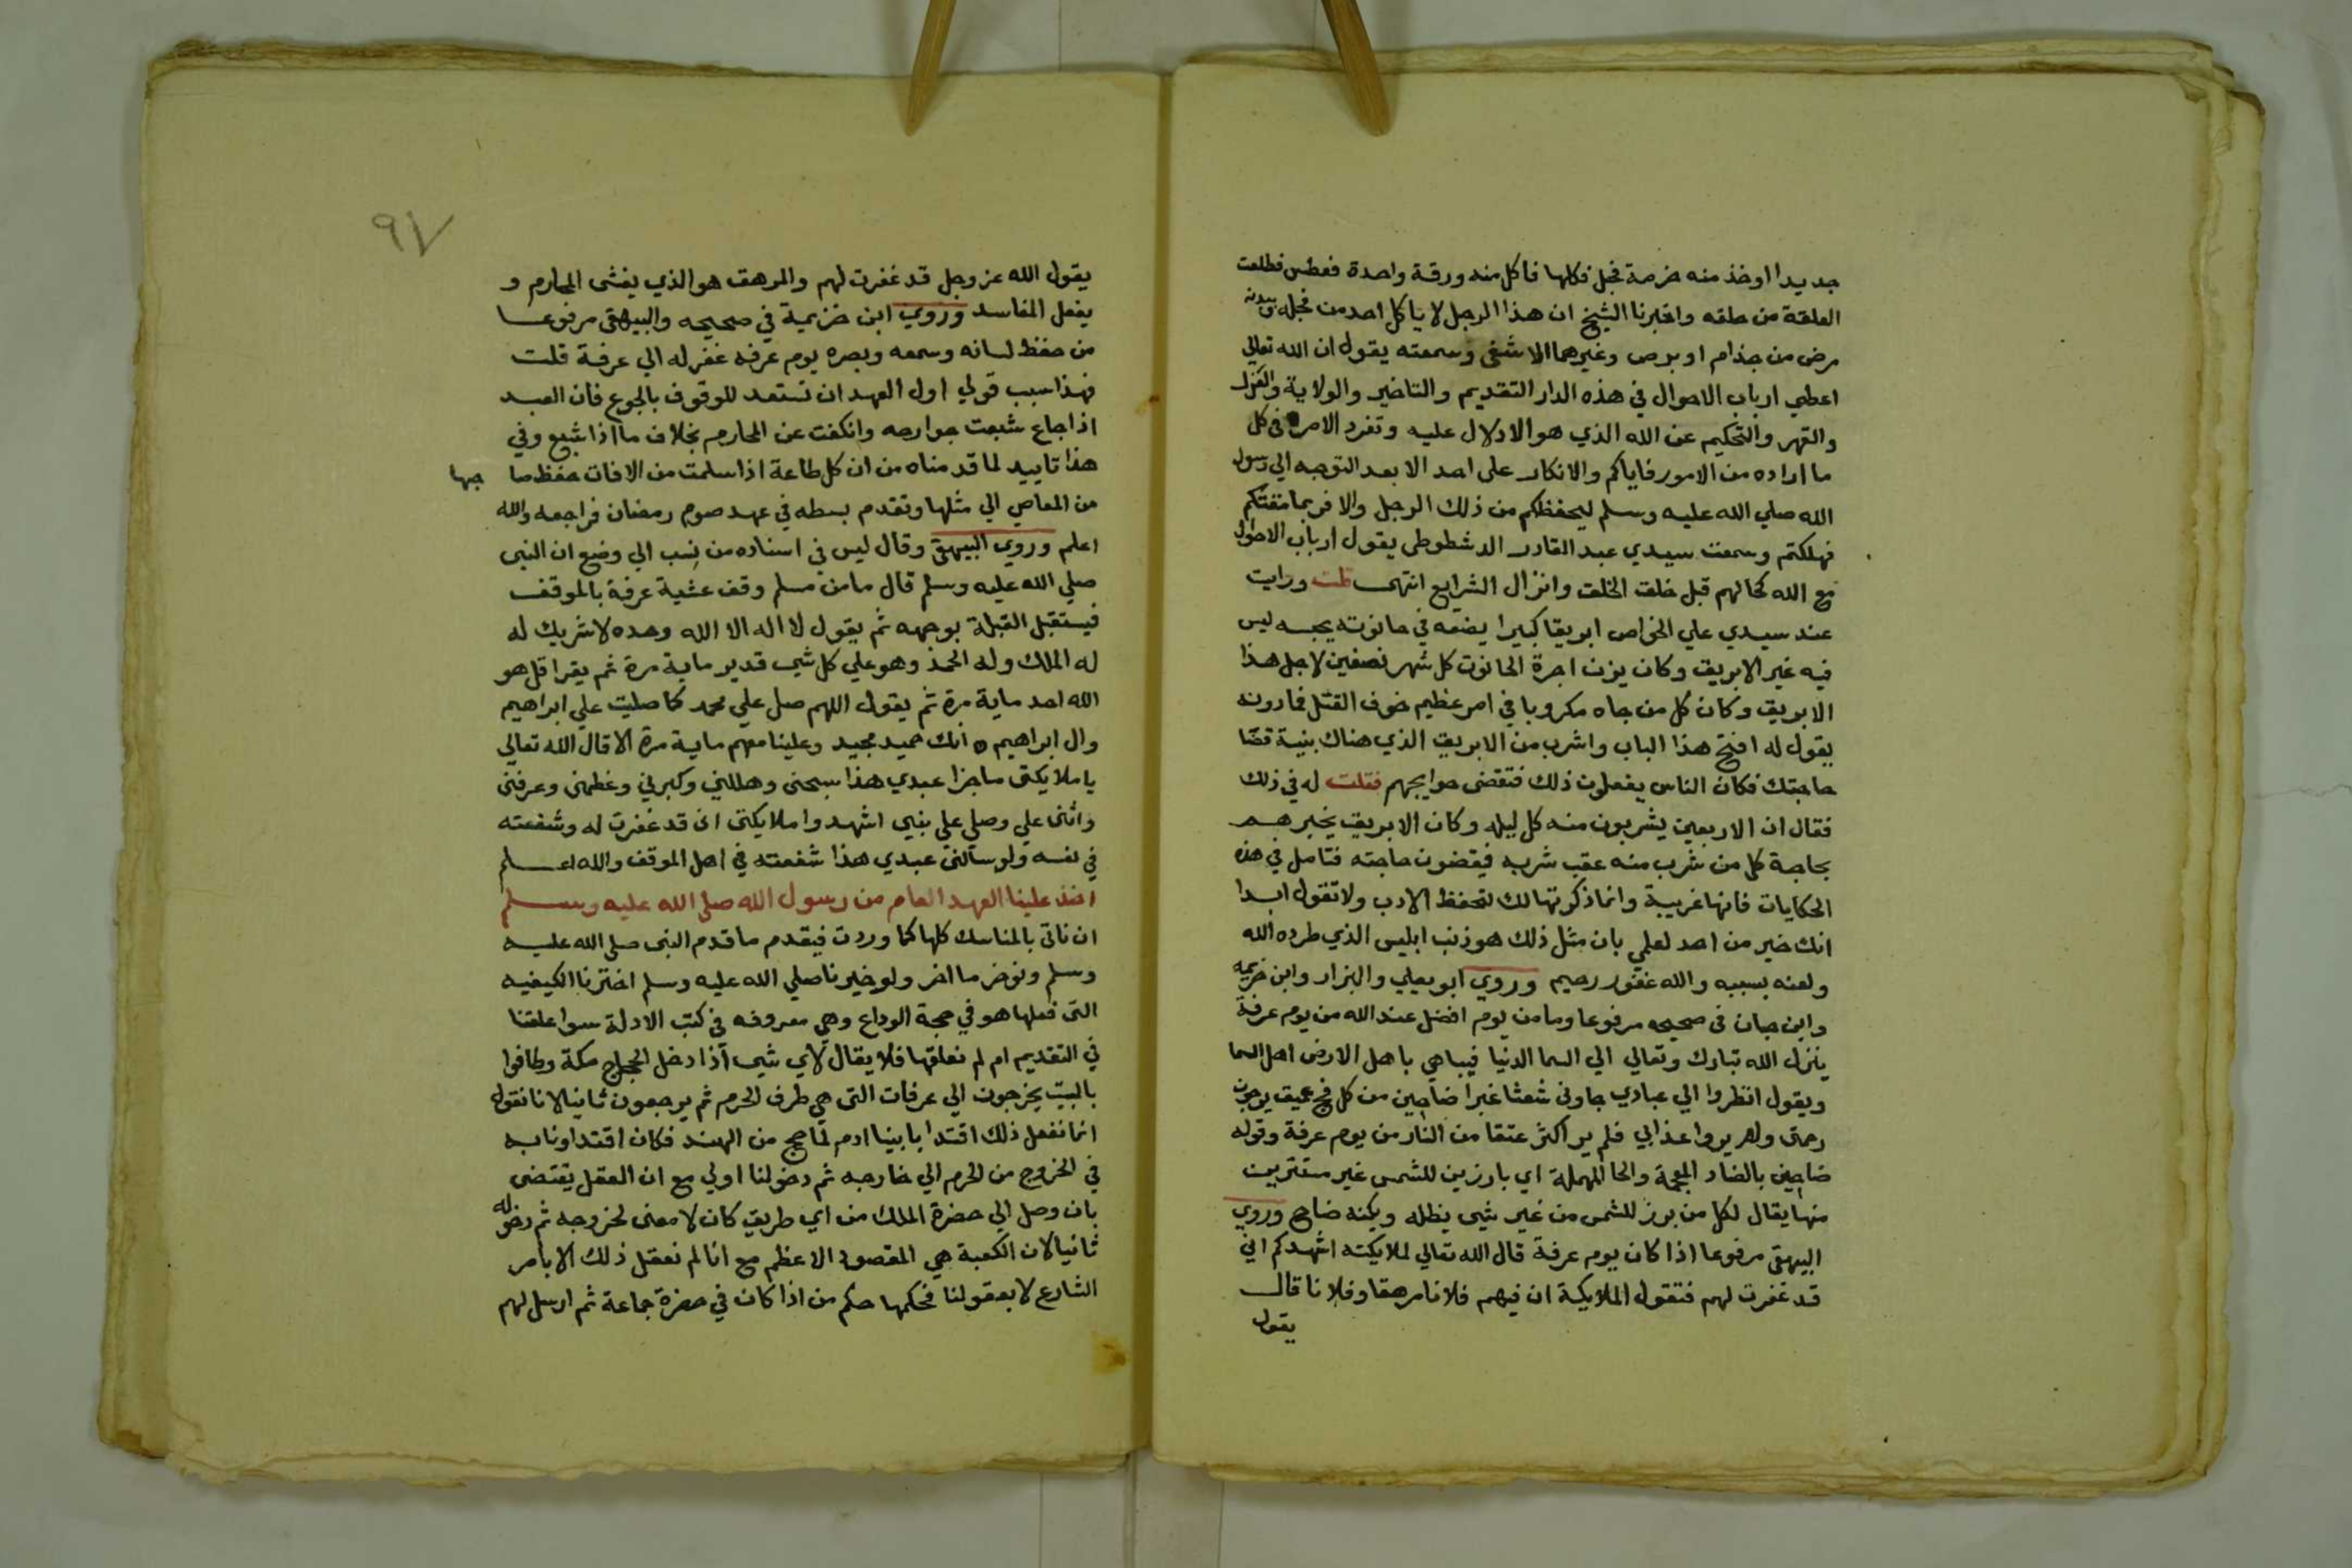 جديدا اوخذ منه حزمة فجل فكلها فاكل منه ورقة واحدة فعطس فطلعت
العلقة من حلقه واخبرنا الشيخ ان هذا الرجل لا ياكل احد من فجله وبه
مرض من جذام او برص وغيرهما الا شفى وسمعته يقول ان الله تعالي
اعطي ارباب الاحوال في هذه الدار التقديم والتاخير والولاية والعزل
والقهر والتحكيم عن الله الذي هو الادلال عليه وتفرد الامر في كل
ما ارادوه من الامور فاياكم والانكار على احد الا بعد التوجه الي رسول
الله صلي الله عليه وسلم ليحفظكم من ذلك الرجل والا فربما مقتكم
فهلكتم وسمعت سيدي عبد القادر الدشطوطي يقول ارباب الاحوال
مع الله كحالهم قبل خلق الخلق وانزال الشرايع انتهى قلت ورايت
عند سيدي علي الخواص ابريقا كبيرا يضعه في حانوته بحبسه ليس
فيه غير الابريق وكان يزن اجرة الحانوت كل شهر نصفين لاجل هذا
الابريق وكان كل من جاه مكروبا في امر عظيم خوف القتل فما دونه
يقول له افتح هذا الباب واشرب من الابريق الذي هناك بنية قضا
حاجتك فكان الناس يفعلون ذلك فتقضى حوايجهم فقلت له في ذلك
فقال ان الاربعين يشربون منه كل ليلة وكان الابريق يخبرهم
بحاجة كل من شرب منه عقب شربه فيقضون حاجته فتامل في هذه
الحكايات فانها غريبة وانما ذكرتها لك لتحفظ الادب ولا تقول ابدا
انك خير من احد لعلمي بان مثل ذلك هو ذنب ابليس الذي طرده الله
ولعنه بسببه والله غفور رحيم وروي ابو يعلي والبزار وابن خزيمة
وابن حبان في صحيحه مرفوعا وما من يوم افضل عند الله من يوم عرفة
ينزل الله تبارك وتعالي الي السما الدنيا فيباهي باهل الارض اهل السما
ويقول انظروا الي عبادي جاوني شعثا غبرا ضاحين من كل فج عميق يرجون
رحمتي ولم يروا عذابي فلم ير اكثر عتقا من النار من يوم عرفة وقوله
ضاحين بالضاد المعجمة والحا المهملة اي بارزين للشمس غير مستترين
منها يقال لكل من برز للشمس من غير شي يظله ويكنه ضاح وروي
البيهقي مرفوعا اذا كان يوم عرفة قال الله تعالي لملايكته اشهدكم اني
قد غفرت لهم فتقول الملايكة ان فيهم فلانا مرهقا وفلانا قال
يقول
٩٧
يقول الله عز وجل قد غفرت لهم والمرهق هو الذي يغشى المحارم و
يفعل المفاسد وروي ابن خزيمة في صحيحه والبيهقى مرفوعا
من حفظ لسانه وسمعه وبصره يوم عرفة غفر له الي عرفة قلت
فهذا سبب قولي اول العهد ان تستعد للوقوف بالجوع فان العبد
اذا جاع شبعت جوارحه وانكفت عن المحارم بخلاف ما اذا شبع وفي
هذا تاييد لما قدمناه من ان كل طاعة اذا سلمت من الافات حفظ صا حبها
من المعاصي الي مثلها وتقدم بسطه في عهد صوم رمضان فراجعه والله
اعلم وروي البيهقي وقال ليس في اسناده من نسب الي وضع ان النبي
صلي الله عليه وسلم قال ما من مسلم وقف عشية عرفة بالموقف
فيستقبل القبلة بوجهه ثم يقول لا اله الا الله وحده لا شريك له
له الملك وله الحمد وهو علي كل شي قدير ماية مرة ثم يقرا قل هو
الله احد ماية مرة ثم يقول اللهم صل علي محمد كما صليت علي ابراهيم
وال ابراهيم انك حميد مجيد وعلينا معهم ماية مرة الا قال الله تعالي
يا ملايكتي ما جزا عبدي هذا سبحني وهللني وكبرني وعظمني وعرفني
واثنى علي وصلي علي نبيي اشهدوا ملايكتي اني قد غفرت له وشفعته
في نفسه ولو سالني عبدي هذا شفعته في اهل الموقف والله اعلم
اخذ علينا العهد العام من رسول الله صلي الله عليه وسلم
ان ناتي بالمناسك كلها كما وردت فيقدم ما قدم النبي صلى الله عليه
وسلم ونوخر ما اخر ولو خيرنا صلي الله عليه وسلم اخترنا الكيفيه
التي فعلها هو في حجة الوداع وهي معروفه في كتب الادلة سوا علقنا
في التقديم ام لم نعلقها فلا يقال لاي شي اذا دخل الحجاج مكة وطافوا
بالبيت يخرجون الي عرفات التي هي طرف الحرم ثم يرجعون ثانيا لانا نقول
انما نفعل ذلك اقتدا بابينا ادم لما حج من الهند فكان اقتداونا به
في الخروج من الحرم الي خارجه ثم دخولنا اولي مع ان العقل يقتضى
بان وصل الي حضرة الملك من اي طريق كان لا معنى لخروجه ثم دخوله
ثانيا لان الكعبة هي المقصود الاعظم مع انا لم نعقل ذلك الا بامر
الشارع لا بعقولنا فحكمها حكم من اذا كان في حضرة جماعة ثم ارسل لهم